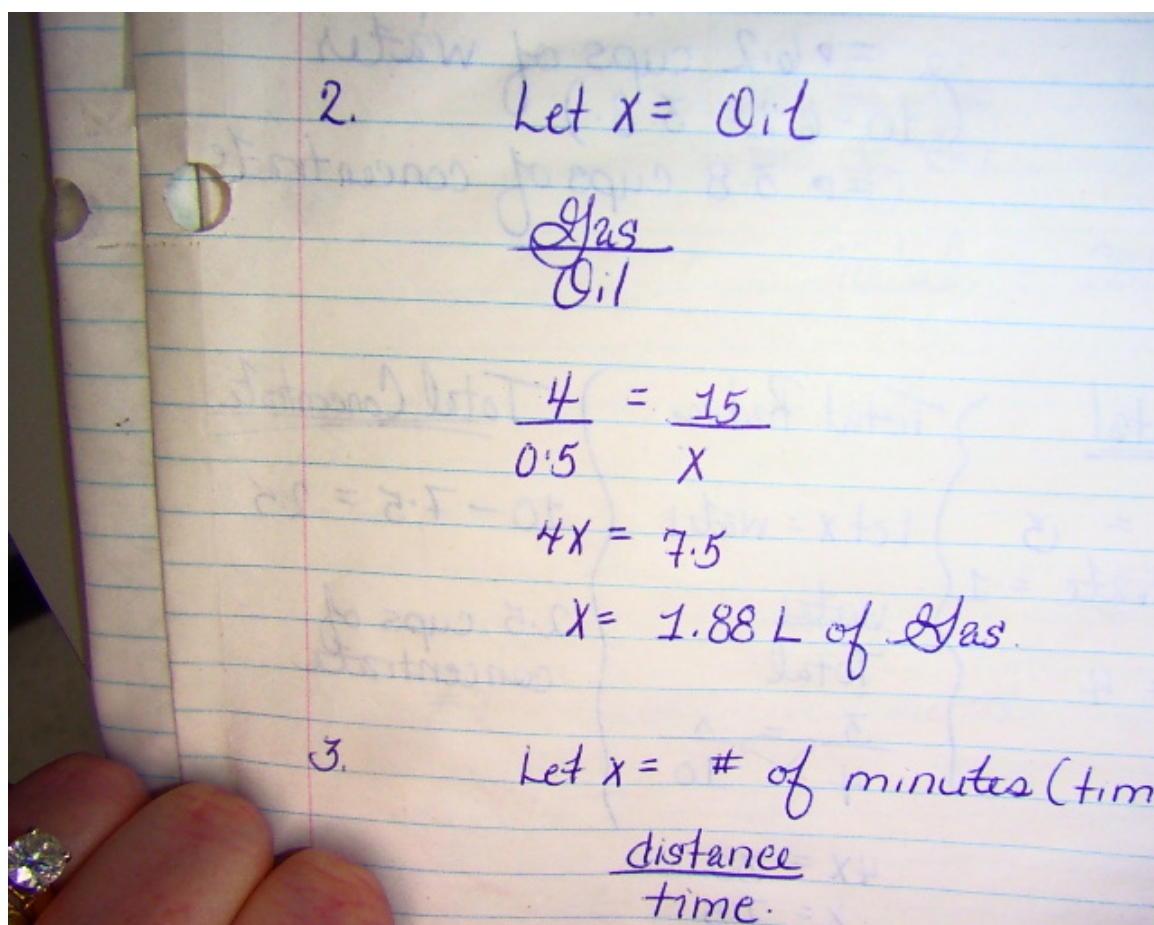 2. Let x = Oil
Gas
Oil
4 = 15
0.5 x
4x = 7.5
x = 1.88 L of Gas.
3. Let x = # of minutes (tim
distance
time.